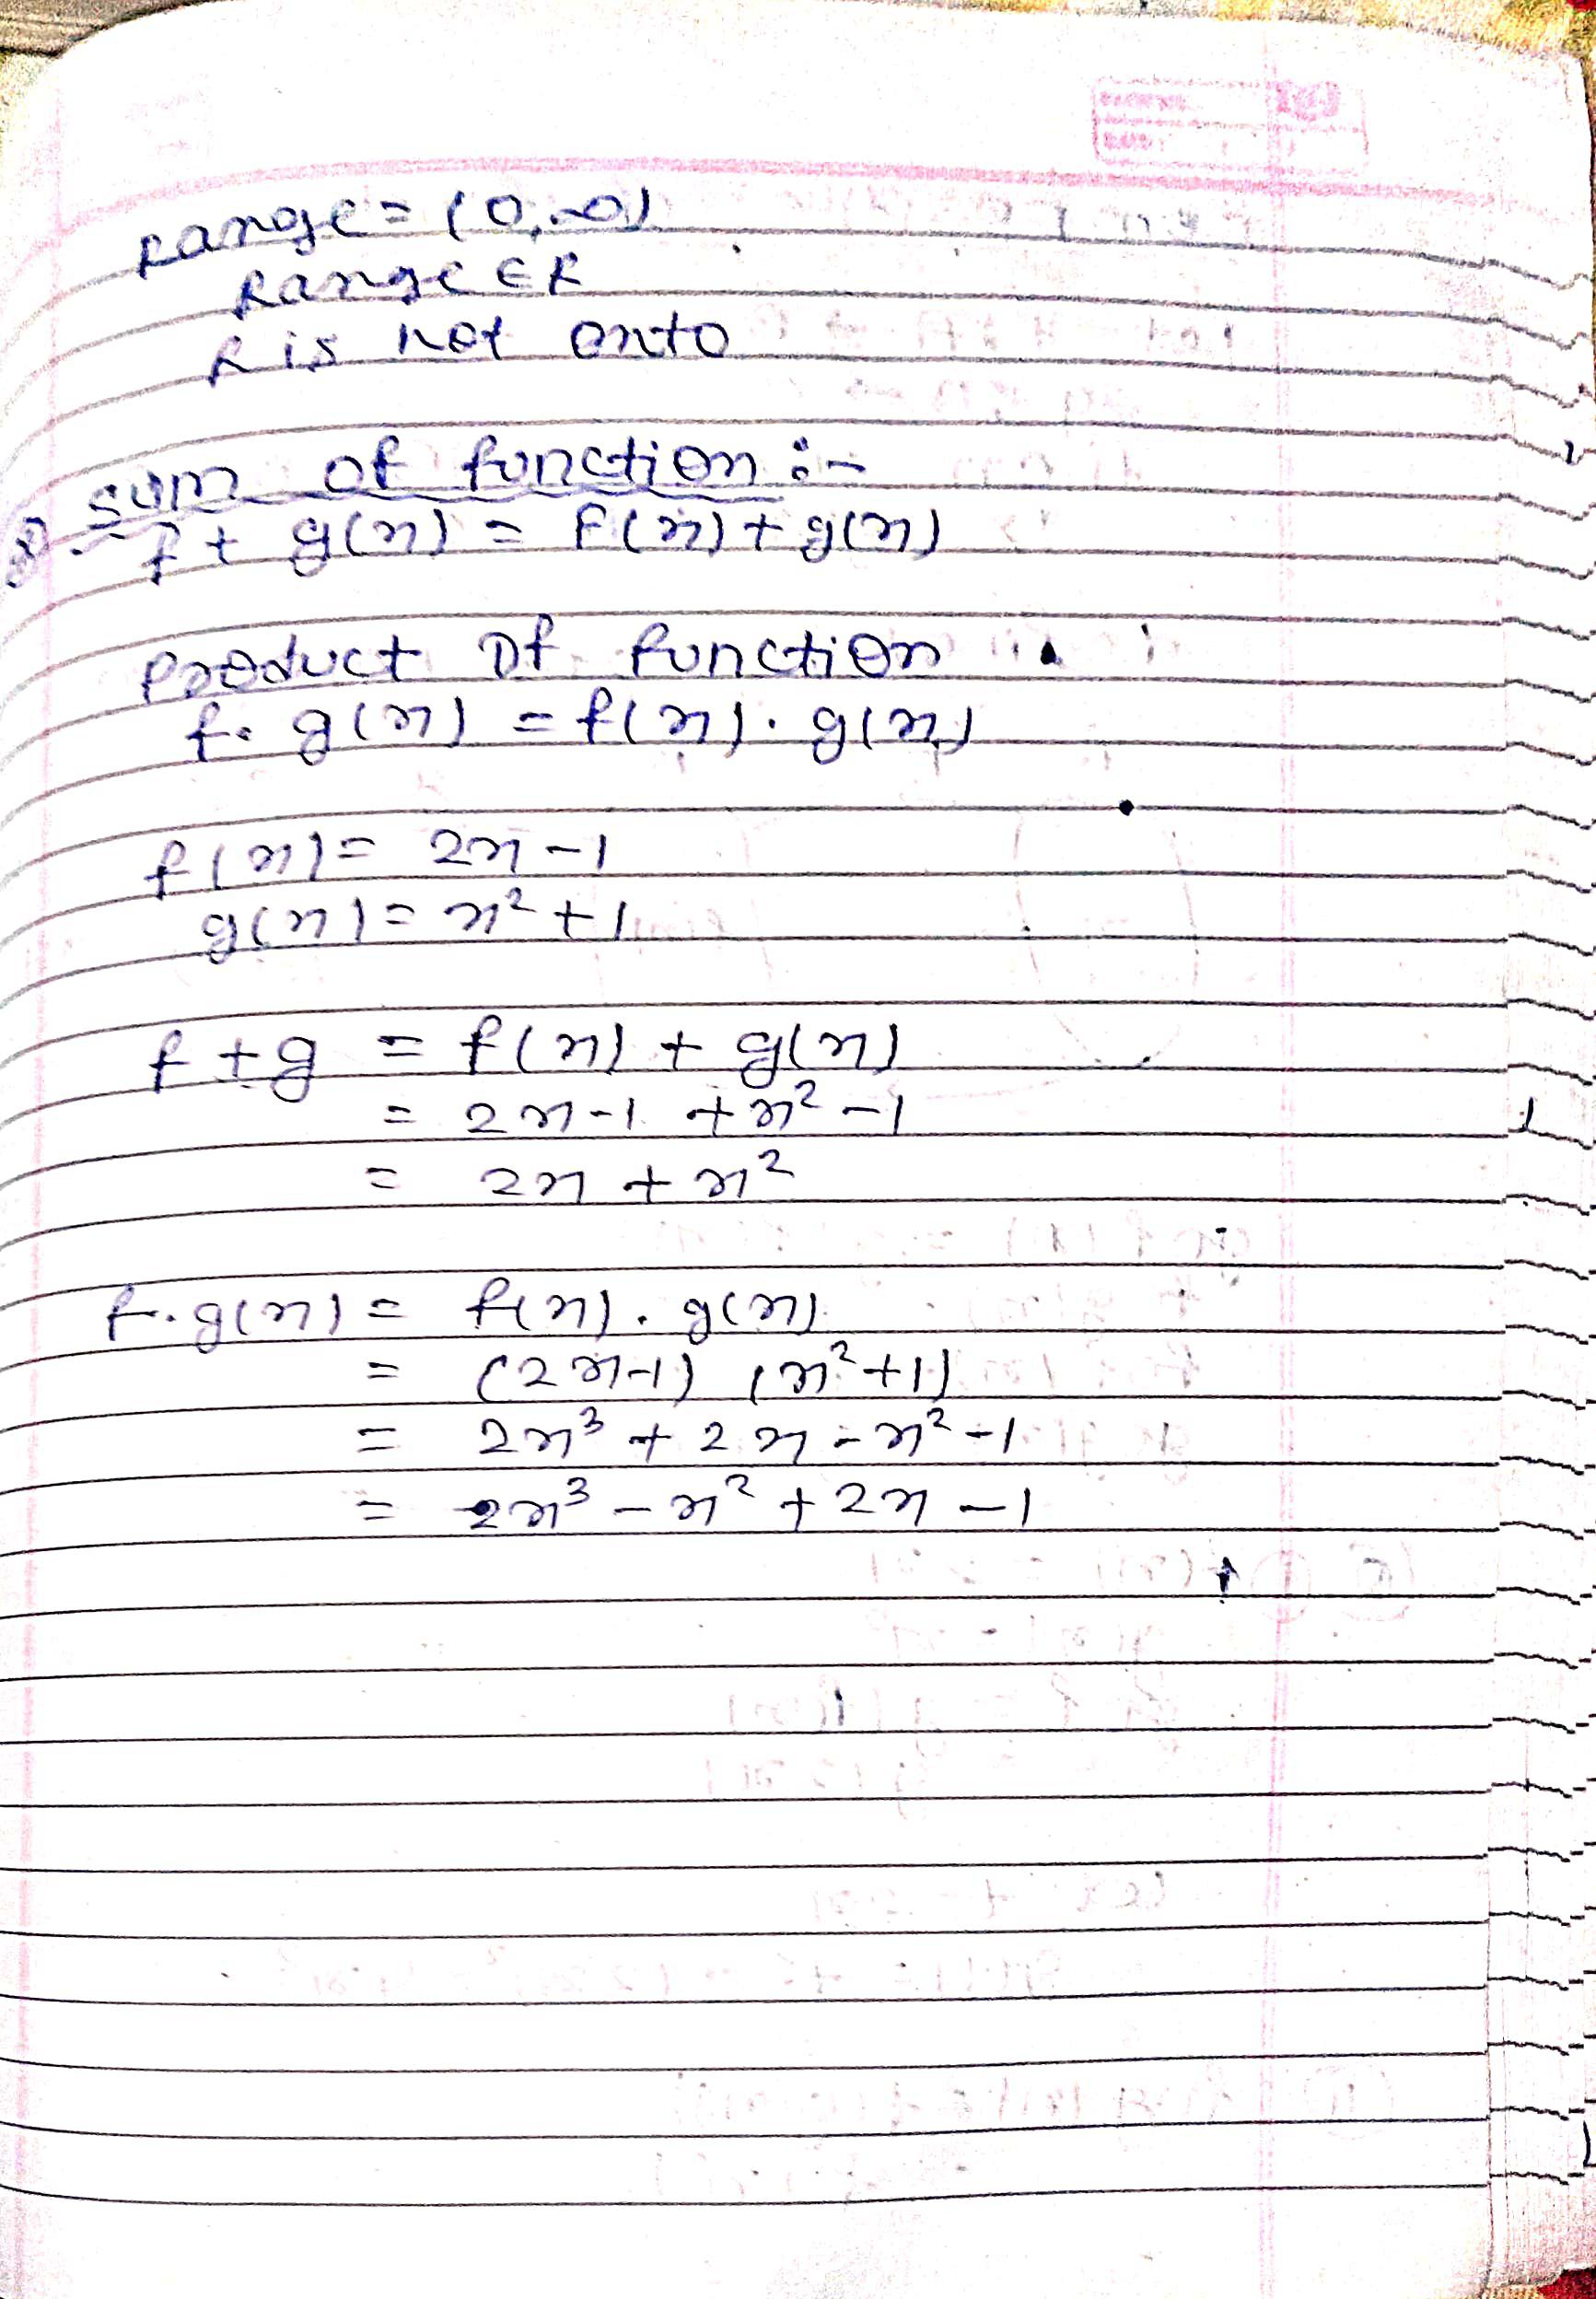 Range = (0, ∞)
Range ∈ R
R is not onto
sum of function :-
f + g(x) = F(x) + g(x)
product of function
f. g(x) = f(x). g(x)
f(x) = 2x - 1
g(x) = x² + 1
f + g = f(x) + g(x)
= 2x - 1 + x² - 1
= 2x + x²
f. g(x) = f(x). g(x)
= (2x-1) (x²+1)
= 2x³ + 2x - x² - 1
= 2x³ - x² + 2x - 1